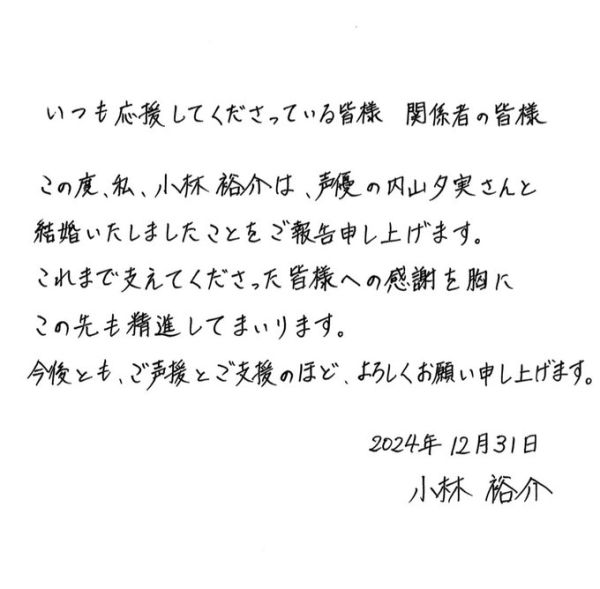 いつも応援してくださっている皆様　関係者の皆様
この度、私、小林裕介は、声優の内山夕実さんと
結婚いたしましたことをご報告申し上げます。
これまで支えてくださった皆様への感謝を胸に
この先も精進してまいります。
今後とも、ご声援とご支援のほど、よろしくお願い申し上げます。
2024年12月31日
小林 裕介